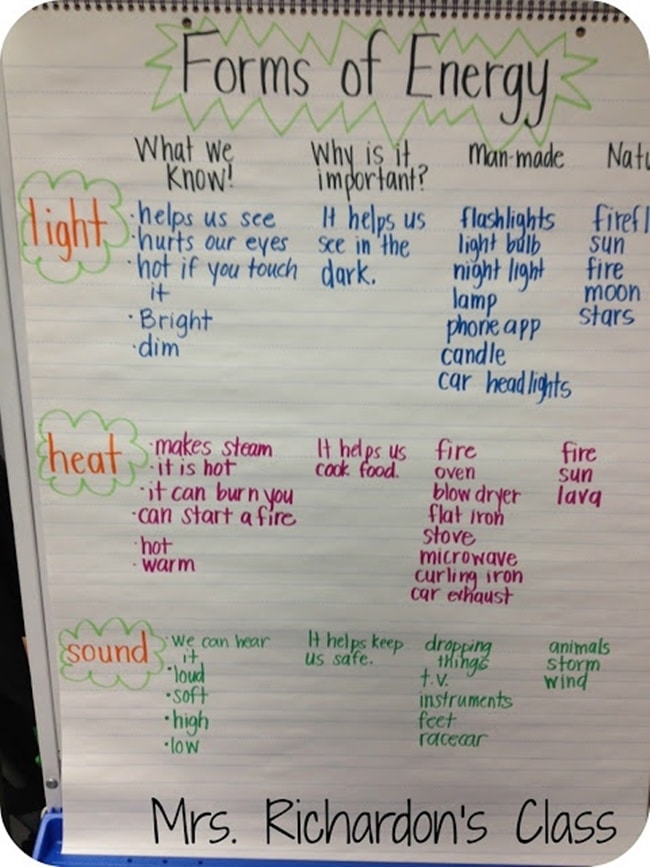 Forms of Energy
What we Know!
Why is it important?
Man-made
Natu
light
·helps us see
·hurts our eyes
·hot if you touch
it
·Bright
·dim
It helps us
see in the
dark.
flashlights
light bulb
night light
lamp
phone app
candle
car headlights
firefl
sun
fire
moon
stars
heat
·makes steam
·it is hot
·it can burn you
·can start a fire
·hot
·warm
It helps us
cook food.
fire
oven
blow dryer
flat iron
stove
microwave
curling iron
car exhaust
fire
sun
lava
sound
·we can hear
it
·loud
·soft
·high
·low
It helps keep
us safe.
dropping
things
t.v.
instruments
feet
racecar
animals
storm
wind
Mrs. Richardon's Class